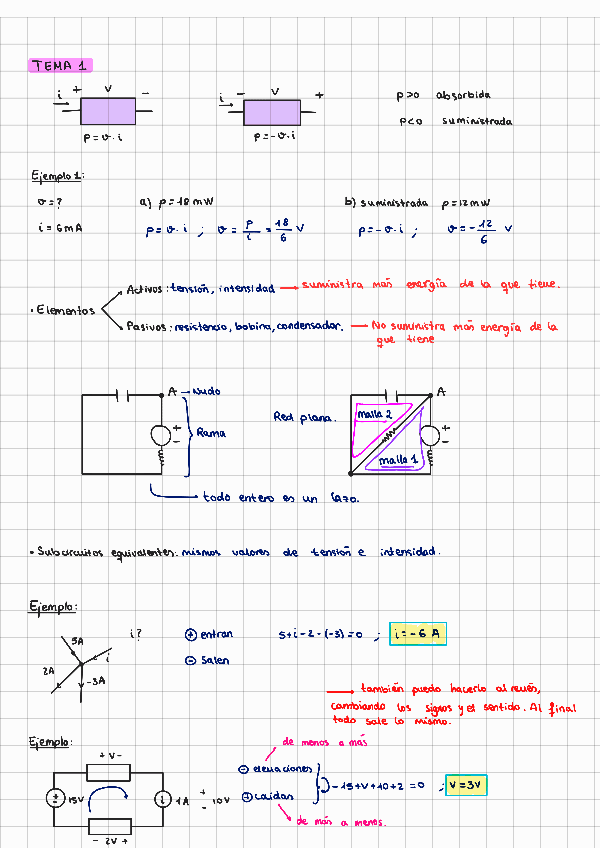 TEMA 1
i + v -
i - v +
p>0 absorbida
p<0 suministrada
p = v · i
p = - v · i
Ejemplo 1:
v = ?
a) p = 18 mW
b) suministrada p = 12 mW
i = 6 mA
p = v · i ; v = p/i = 18/6 V
p = - v · i ; v = - 12/6 V
· Elementos
Activos: tensión, intensidad → suministra más energía de la que tiene.
Pasivos: resistencia, bobina, condensador. → No suministra más energía de la
que tiene
A → Nudo
Rama
+
-
Red plana.
malla 2
malla 1
A
+
-
todo entero es un lazo.
· Subcircuitos equivalentes: mismos valores de tensión e intensidad.
Ejemplo:
5A
i
2A
-3A
i?
+ entran
- salen
5 + i - 2 - (-3) = 0 ; i = - 6 A
→ también puedo hacerlo al revés,
cambiando los signos y el sentido. Al final
todo sale lo mismo.
Ejemplo:
+ V -
± 15V
i 1A
+ 10V
-
- 2V +
de menos a más
- elevaciones
+ caídas
de más a menos.
- 15 + V + 10 + 2 = 0 ; V = 3V